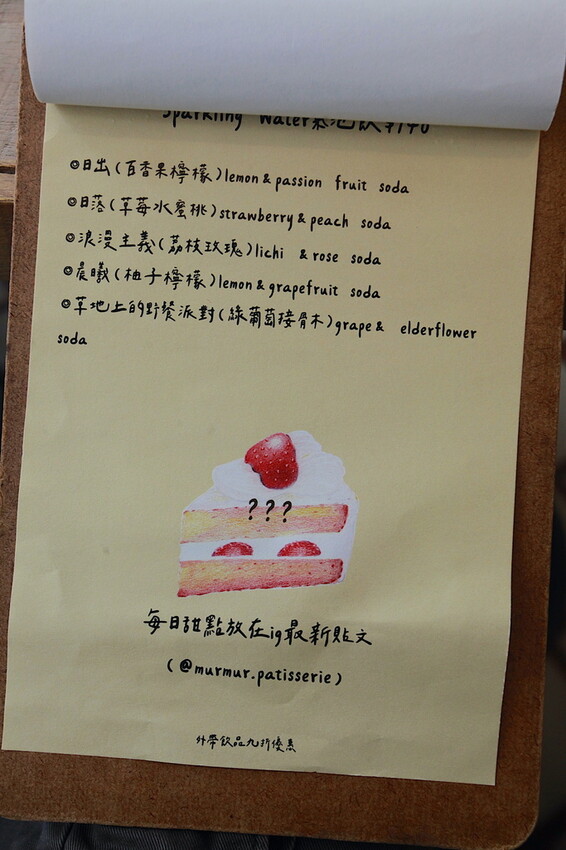 Sparkling Water氣泡飲$140
◎日出(百香果檸檬)lemon & passion fruit soda
◎日落(草莓水蜜桃)strawberry & peach soda
◎浪漫主義(荔枝玫瑰)lichi & rose soda
◎晨曦(柚子檸檬)lemon & grapefruit soda
◎草地上的野餐派對(綠葡萄接骨木)grape & elderflower
soda
???
每日甜點放在ig最新貼文
(@murmur.patisserie)
外帶飲品九折優惠